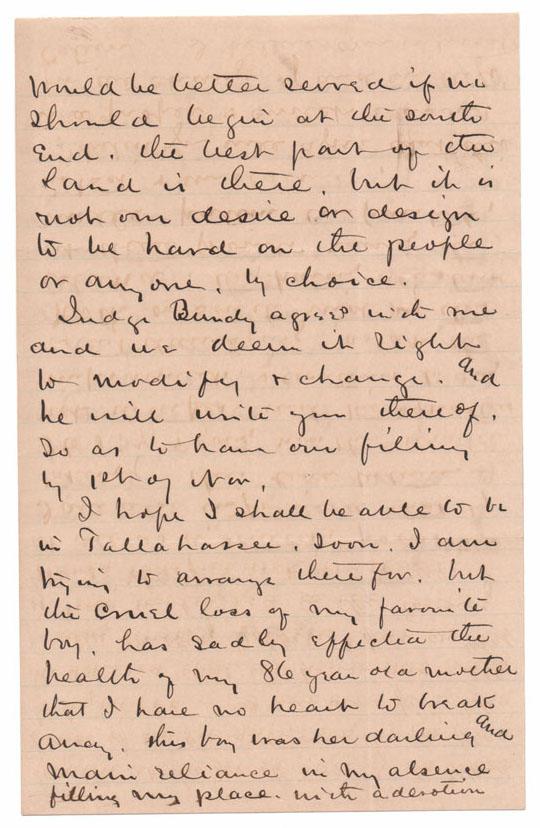 would be better served if we
should begin at the south
End. the best part of the
land is there, but it is
not our desire or design
to be hard on the people
or anyone, by choice.
Judge Bundy agrees with me
and we deem it right
to modify & change. And
he will write you thereof,
so as to have our filing
by 1st of Nov,
I hope I shall be able to be
in Tallahassee, soon. I am
trying to arrange therefor, but
the cruel loss of my favorite
boy, has sadly effected the
health of my 86 year old mother
that I have no heart to break
away. this boy was her darling And
main reliance in my absence
filling my place. with a devotion